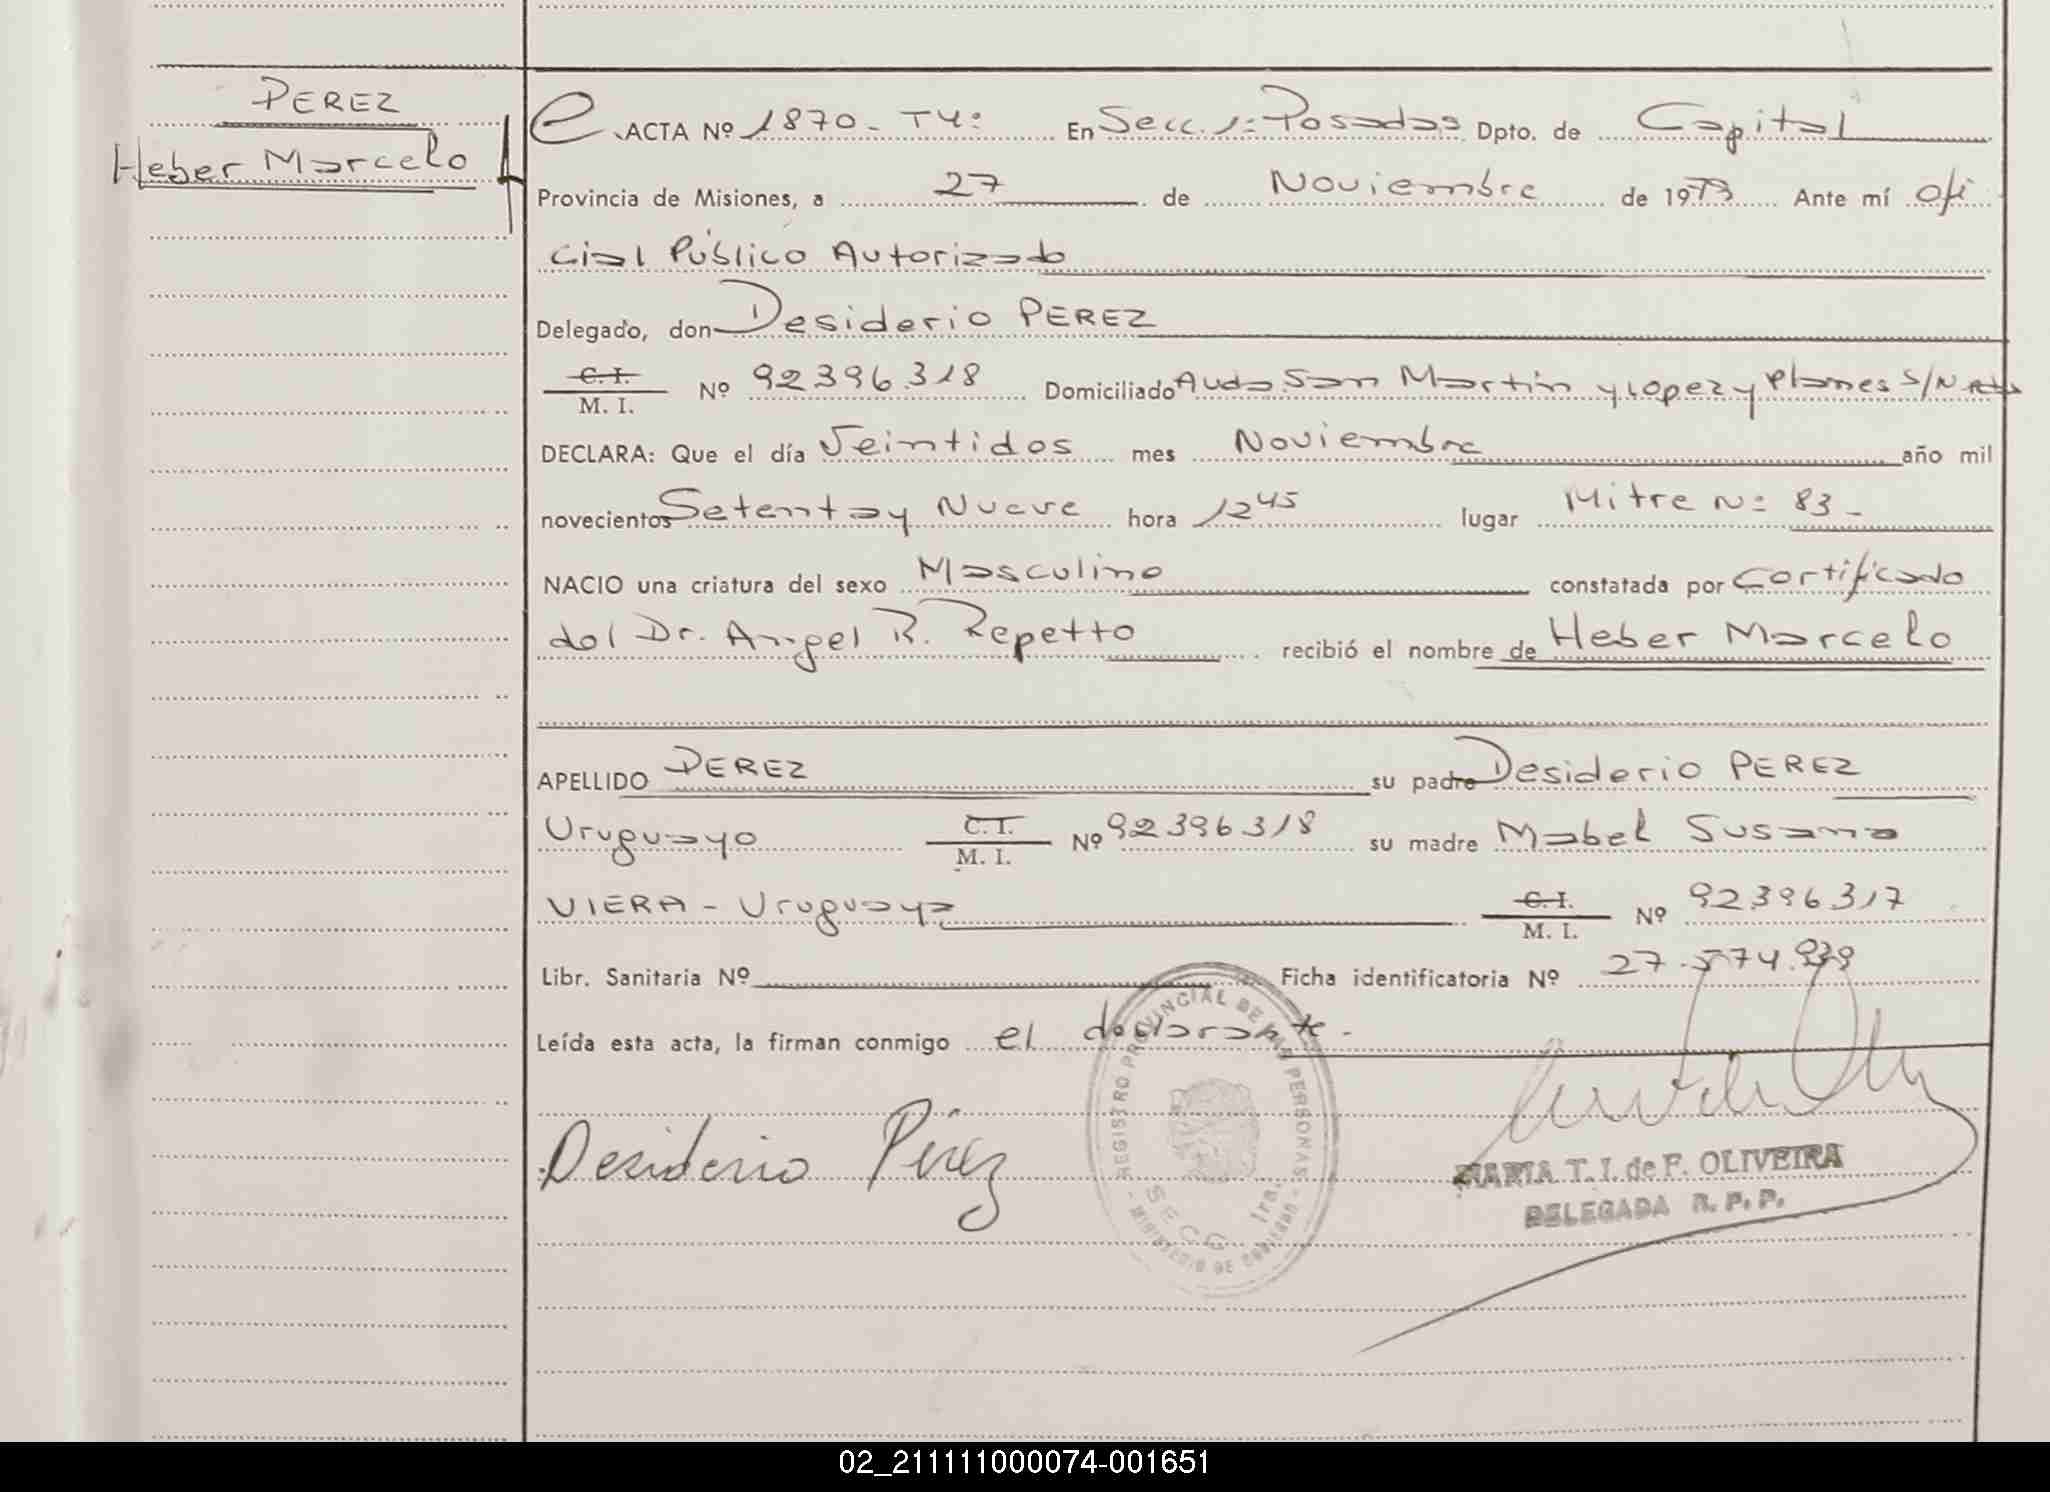 PEREZ
Heber Marcelo
ACTA Nº 1870- T4: En Secc. 1: Posadas Dpto. de Capital
Provincia de Misiones, a 27 de Noviembre de 1979 Ante mí ofi
cial Público Autorizado
Delegado, don Desiderio PEREZ
C. I.
M. I. Nº 92396318 Domiciliado Avda. San Martin y Lopez y Planes S/N
DECLARA: Que el día Veintidos mes Noviembre año mil
novecientos Setenta y Nueve hora 12 45 lugar Mitre Nº 83-
NACIO una criatura del sexo Masculino constatada por Certificado
del Dr. Angel R. Repetto recibió el nombre de Heber Marcelo
APELLIDO PEREZ su padre Desiderio PEREZ
Uruguayo C. I. M. I. Nº 92396318 su madre Mabel Susana
VIERA - Uruguaya C. I. M. I. Nº 92396317
Libr. Sanitaria Nº Ficha identificatoria Nº 27.574.939
Leída esta acta, la firman conmigo el declarante-
Desiderio Pérez
REGISTRO PROVINCIAL DE LAS PERSONAS
SECC. 1ra.
MINISTERIO DE GOBIERNO
MARIA T. I. de F. OLIVEIRA
DELEGADA R. P. P.
02_211111000074-001651